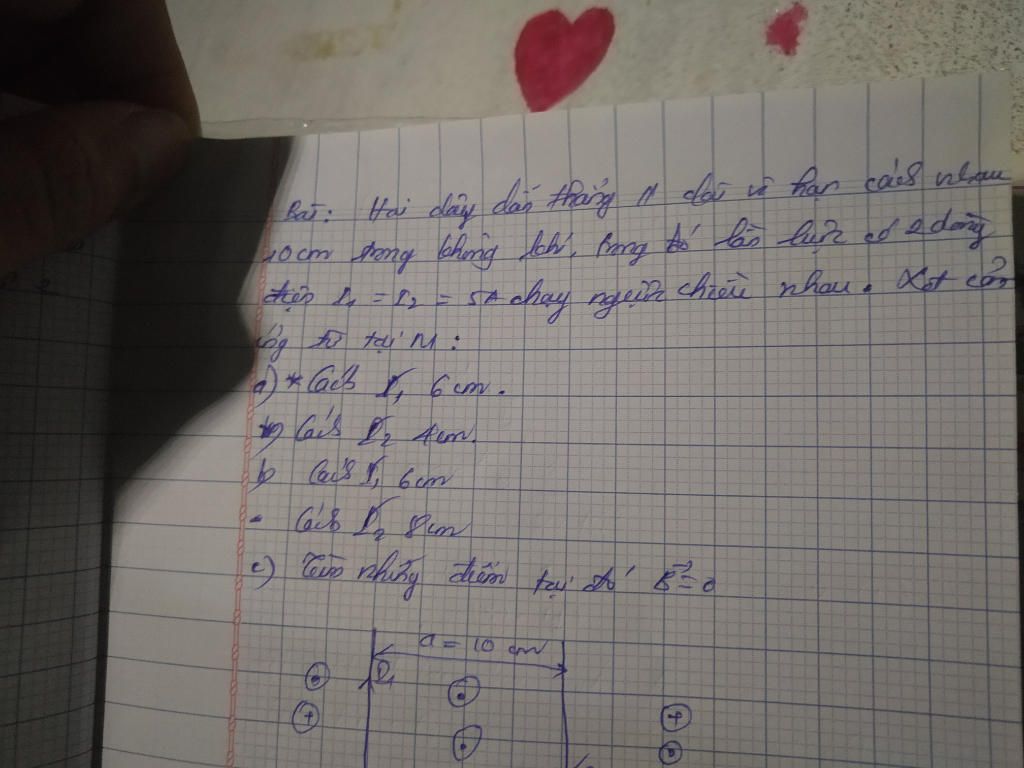 Bài: Hai dây dẫn thẳng // dài vô hạn cách nhau
10cm trong không khí, trong đó lần lượt có 2 dòng
điện I₁ = I₂ = 5A chạy ngược chiều nhau. Xđ cảm
ứng từ tại M:
a) * Cách I₁ 6cm.
Cách I₂ 4cm.
b Cách I₁ 6cm
- Cách I₂ 8cm
c) Tìm những điểm tại đó B⃗ = 0
a = 10 cm
I₁